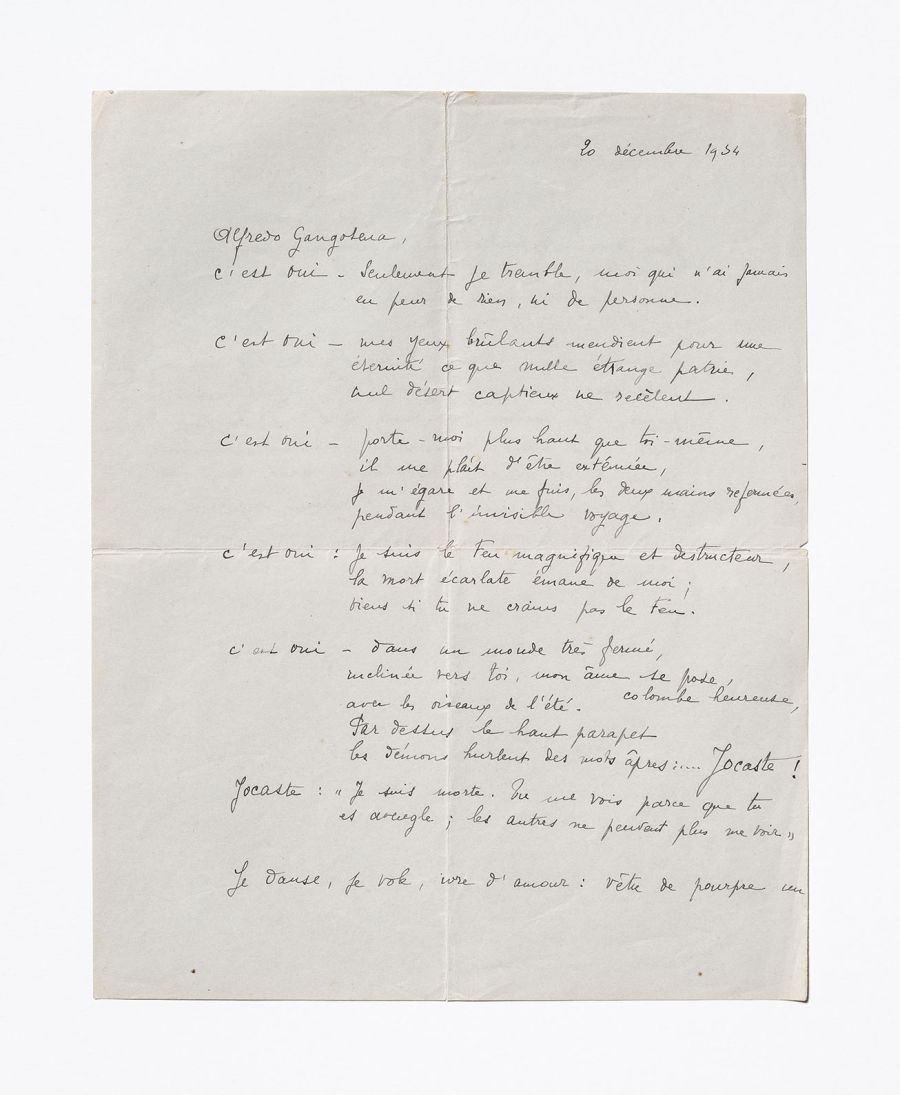 20 décembre 1934
Alfredo Gangotena,
c'est oui - Seulement je tremble, moi qui n'ai jamais
eu peur de rien, ni de personne.
c'est oui - mes yeux brûlants mendient pour une
éternité ce que nulle étrange patrie,
nul désert captieux ne recèlent.
c'est oui - porte-moi plus haut que toi-même,
il me plaît d'être exténuée,
je m'égare et me fuis, les deux mains refermées,
pendant l'invisible voyage.
c'est oui : je suis le Feu magnifique et destructeur,
la mort écarlate émane de moi ;
viens si tu ne crains pas le Feu.
c'est oui - dans un monde très fermé,
inclinée vers toi, mon âme se pose,
colombe heureuse,
avec les oiseaux de l'été.
Par dessus le haut parapet
les démons hurlent des mots âpres :.... Jocaste !
Jocaste : " Je suis morte. Tu me vois parce que tu
es aveugle ; les autres ne peuvent plus me voir "
Je danse, je vole, ivre d'amour : vêtu de pourpre un